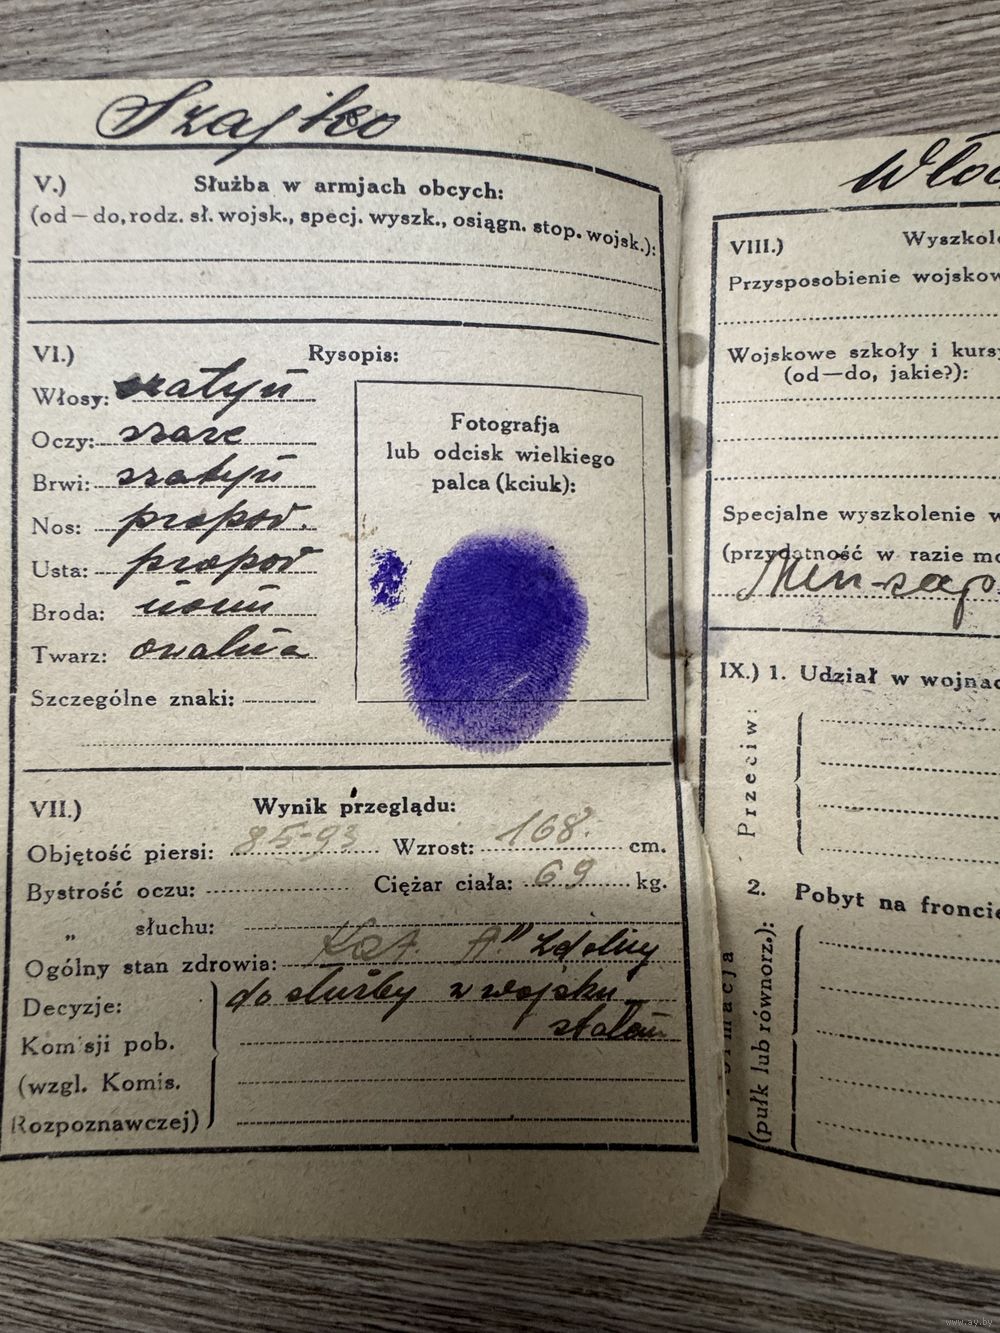 Szajko
V.) Służba w armjach obcych:
(od—do, rodz. sł. wojsk., specj. wyszk., osiągn. stop. wojsk.):
VI.) Rysopis:
Włosy: szatyn
Oczy: szare
Brwi: szatyn
Nos: propor.
Usta: propor
Broda:
Twarz: owalna
Szczególne znaki:
Fotografja
lub odcisk wielkiego
palca (kciuk):
VII.) Wynik przeglądu:
Objętość piersi: 85-93 Wzrost: 168. cm.
Bystrość oczu: Ciężar ciała: 69 kg.
„ słuchu:
Ogólny stan zdrowia: Kat. A" zdolny
Decyzje: do służby w wojsku
stałem
Komisji pob.
(wzgl. Komis.
Rozpoznawczej)
Włod
VIII.) Wyszkole
Przysposobienie wojskow
Wojskowe szkoły i kursy
(od—do, jakie?):
Specjalne wyszkolenie w
(przydatność w razie mo
IX.) 1. Udział w wojnac
Przeciw:
2. Pobyt na froncie
(pułk lub równorz.):
www.ay.by